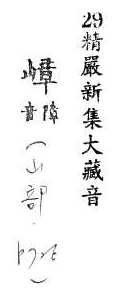 29精嚴新集大藏音
嶂
音障
(山部.